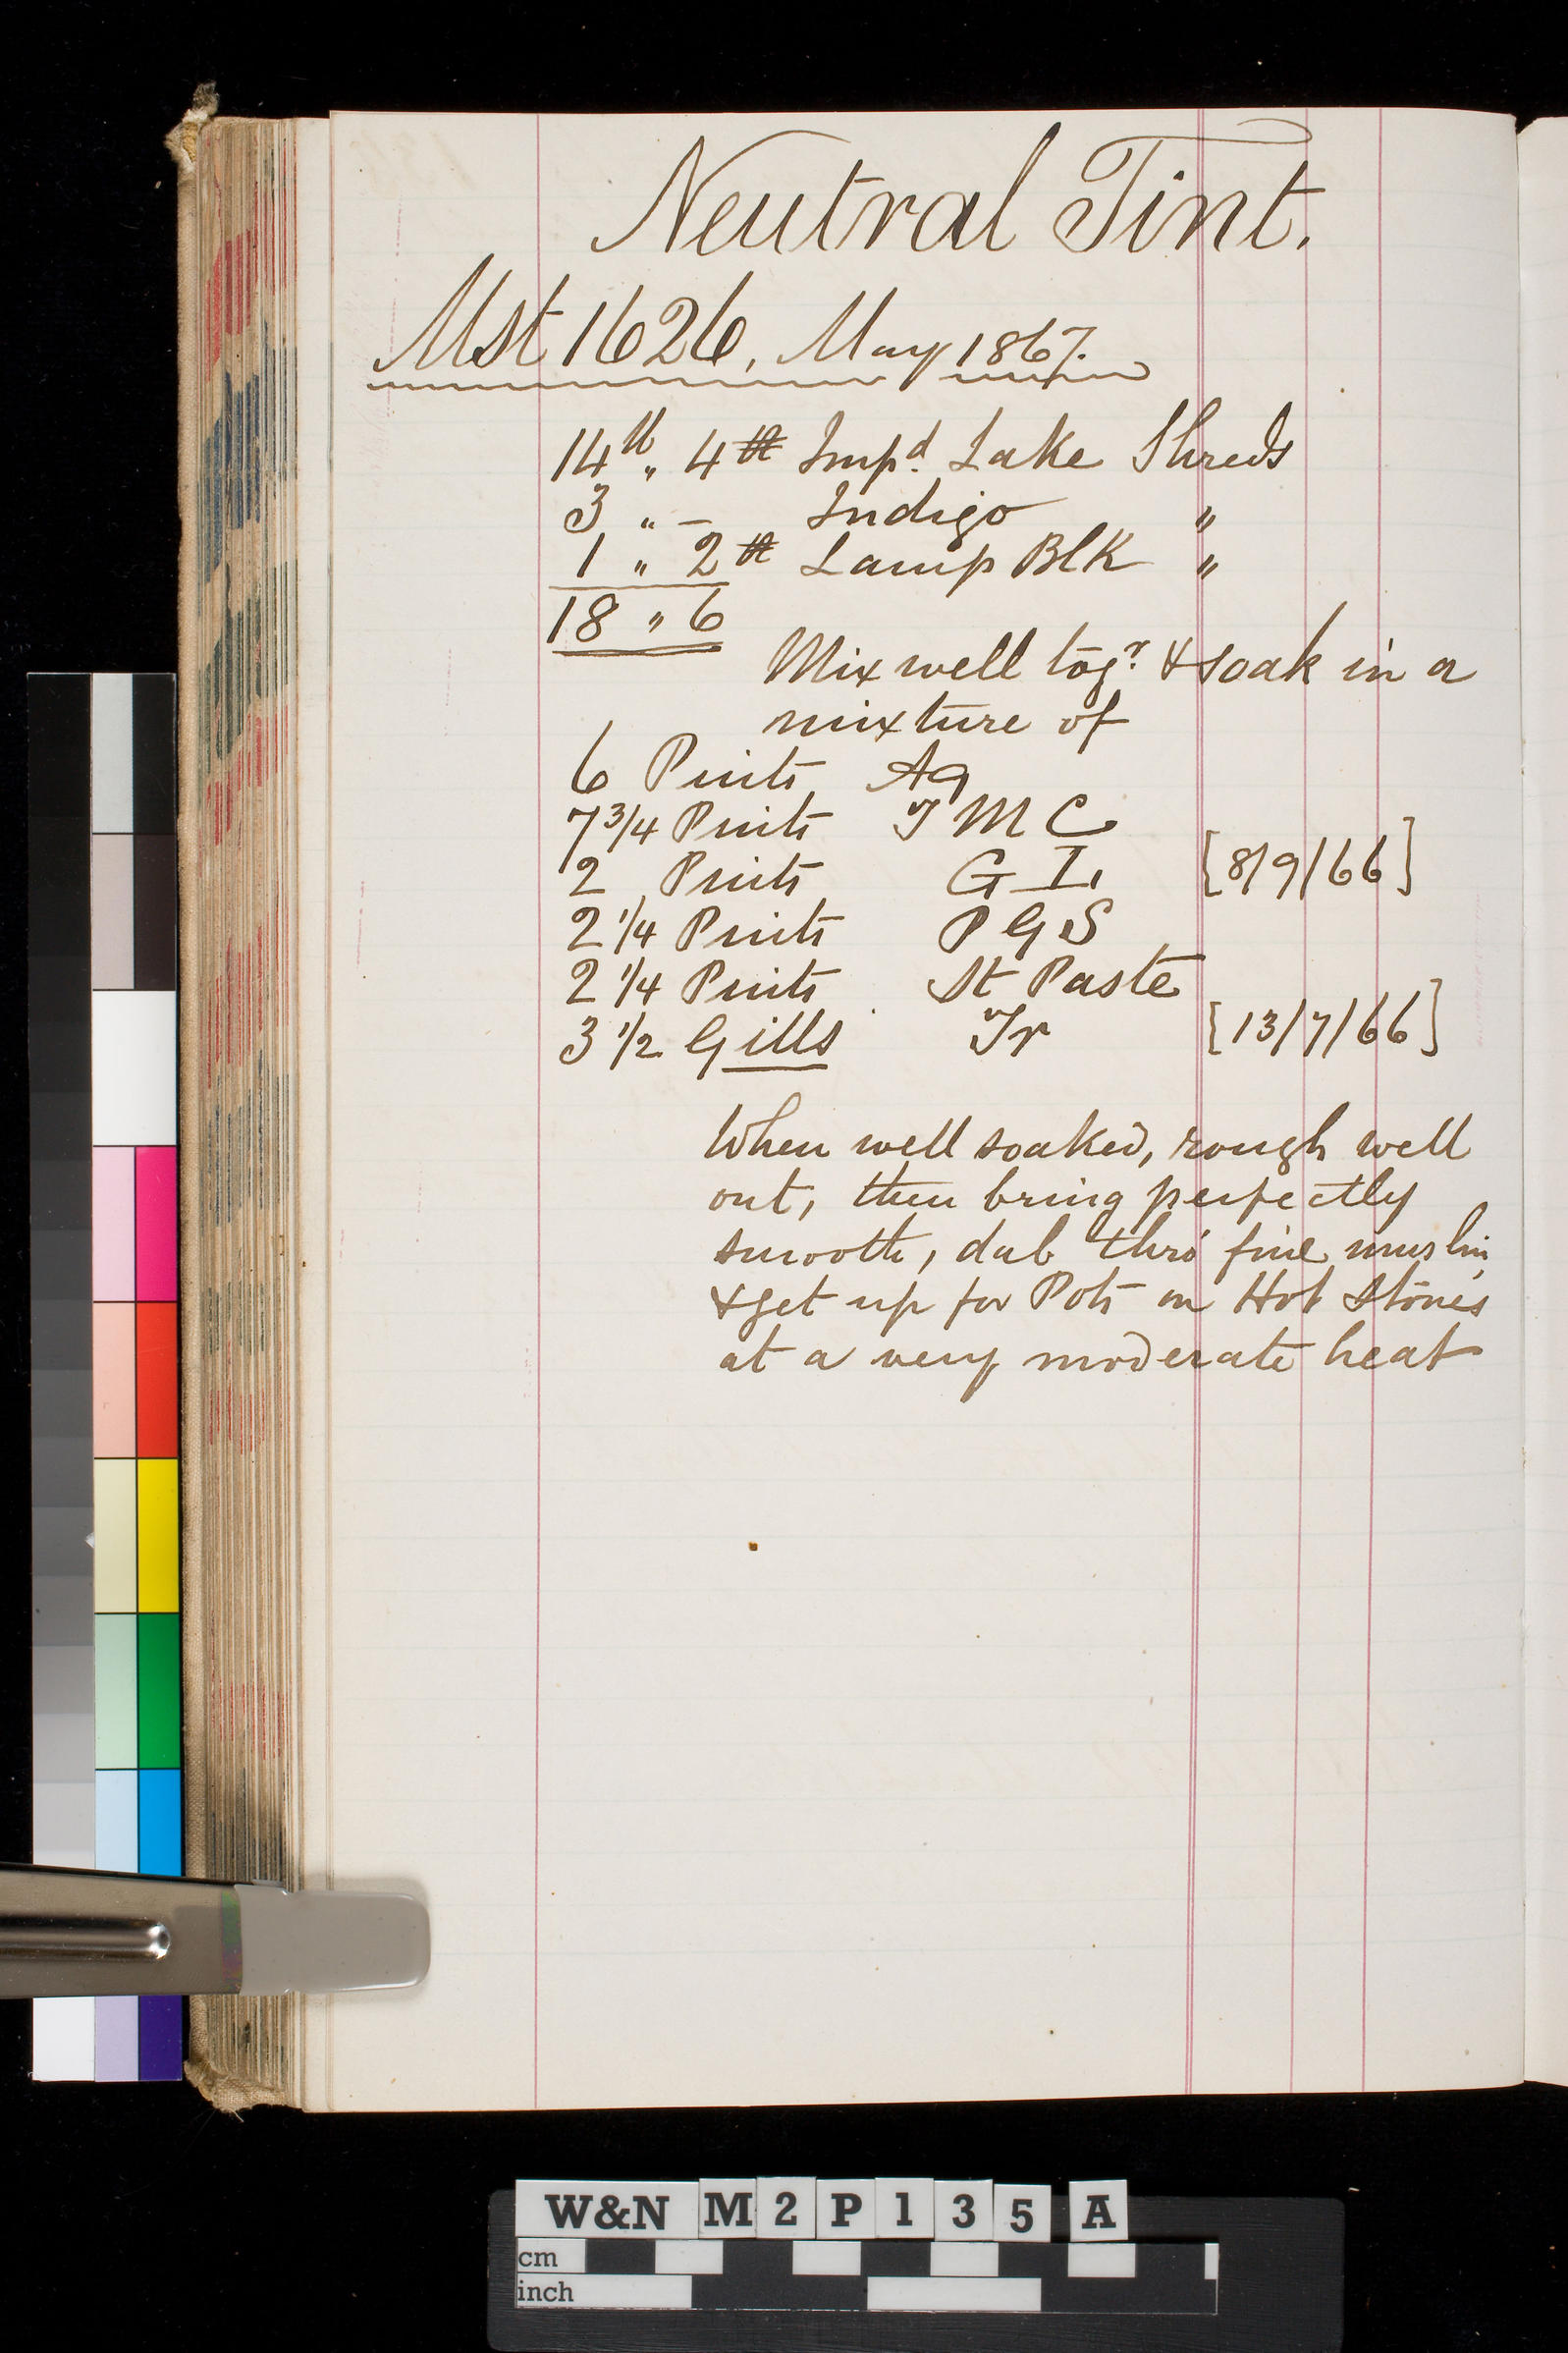 Neutral Tint.
Mst 1626, May 1867.
14 lb „ 4 tt Impd. Lake Shreds
3 „ – Indigo „
1 „ 2 tt Lamp Blk „
18 „ 6
Mix well togr. & soak in a
mixture of
6 Pints Aq
7 3/4 Pints T M C
2 Pints G I. [8/9/66]
2 1/4 Pints P G S
2 1/4 Pints St Paste
3 1/2 Gills Tr [13/7/66]
When well soaked, rough well
out, then bring perfectly
smooth, dab thro' fine muslin
& get up for Pots on Hot Stones
at a very moderate heat
W&N M2P135A
cm
inch